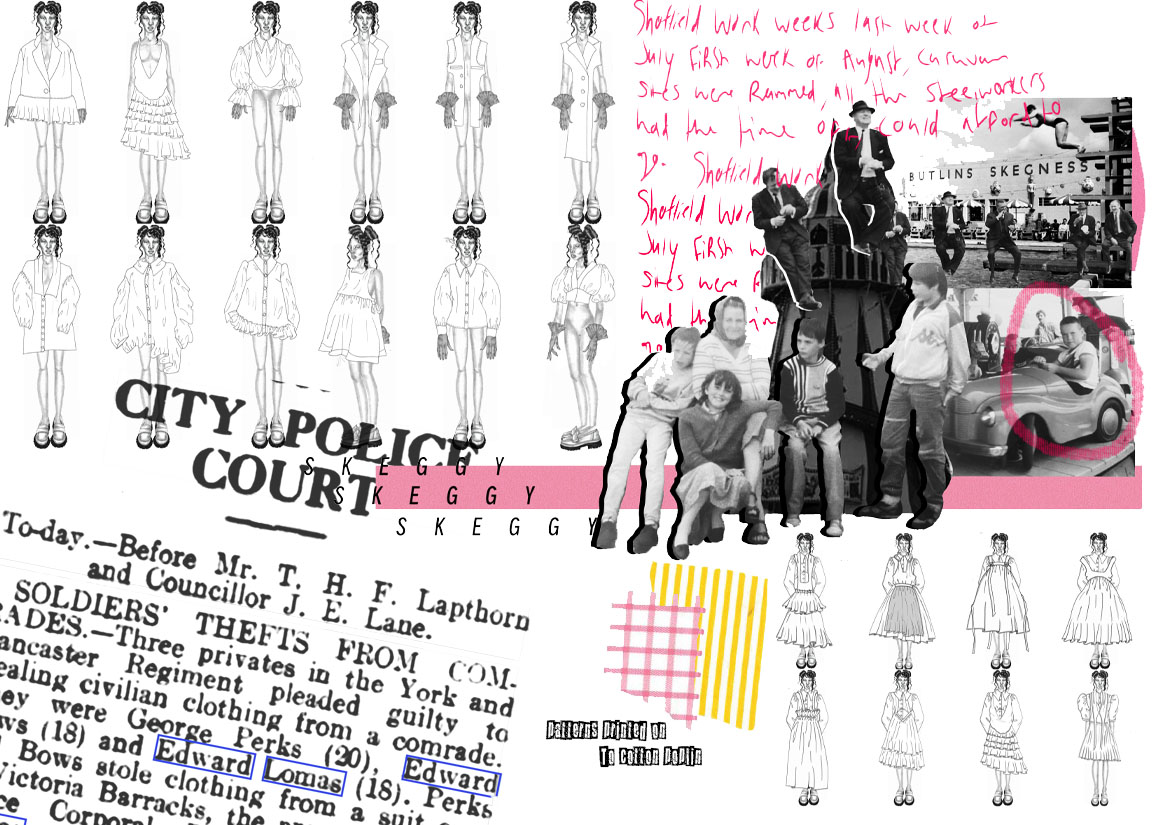 Sheffield work weeks last week of
July First week of August, caravan
sites were Rammed, all the steelworkers
had the time off could afford to
go. Sheffield work
Sheffield Wor
July First w
sites were
had th
BUTLINS SKEGNESS
CITY POLICE
COURT
SKEGGY
SKEGGY
SKEGGY
To-day.—Before Mr. T. H. F. Lapthorn
and Councillor J. E. Lane.
SOLDIERS' THEFTS FROM COM-
RADES.—Three privates in the York and
ancaster Regiment pleaded guilty to
ealing civilian clothing from a comrade.
ey were George Perks (20), Edward
ws (18) and Edward Lomas (18). Perks
Bows stole clothing from a suit
Victoria Barracks, the
ce Corporal
Patterns printed on
To cotton Poplin